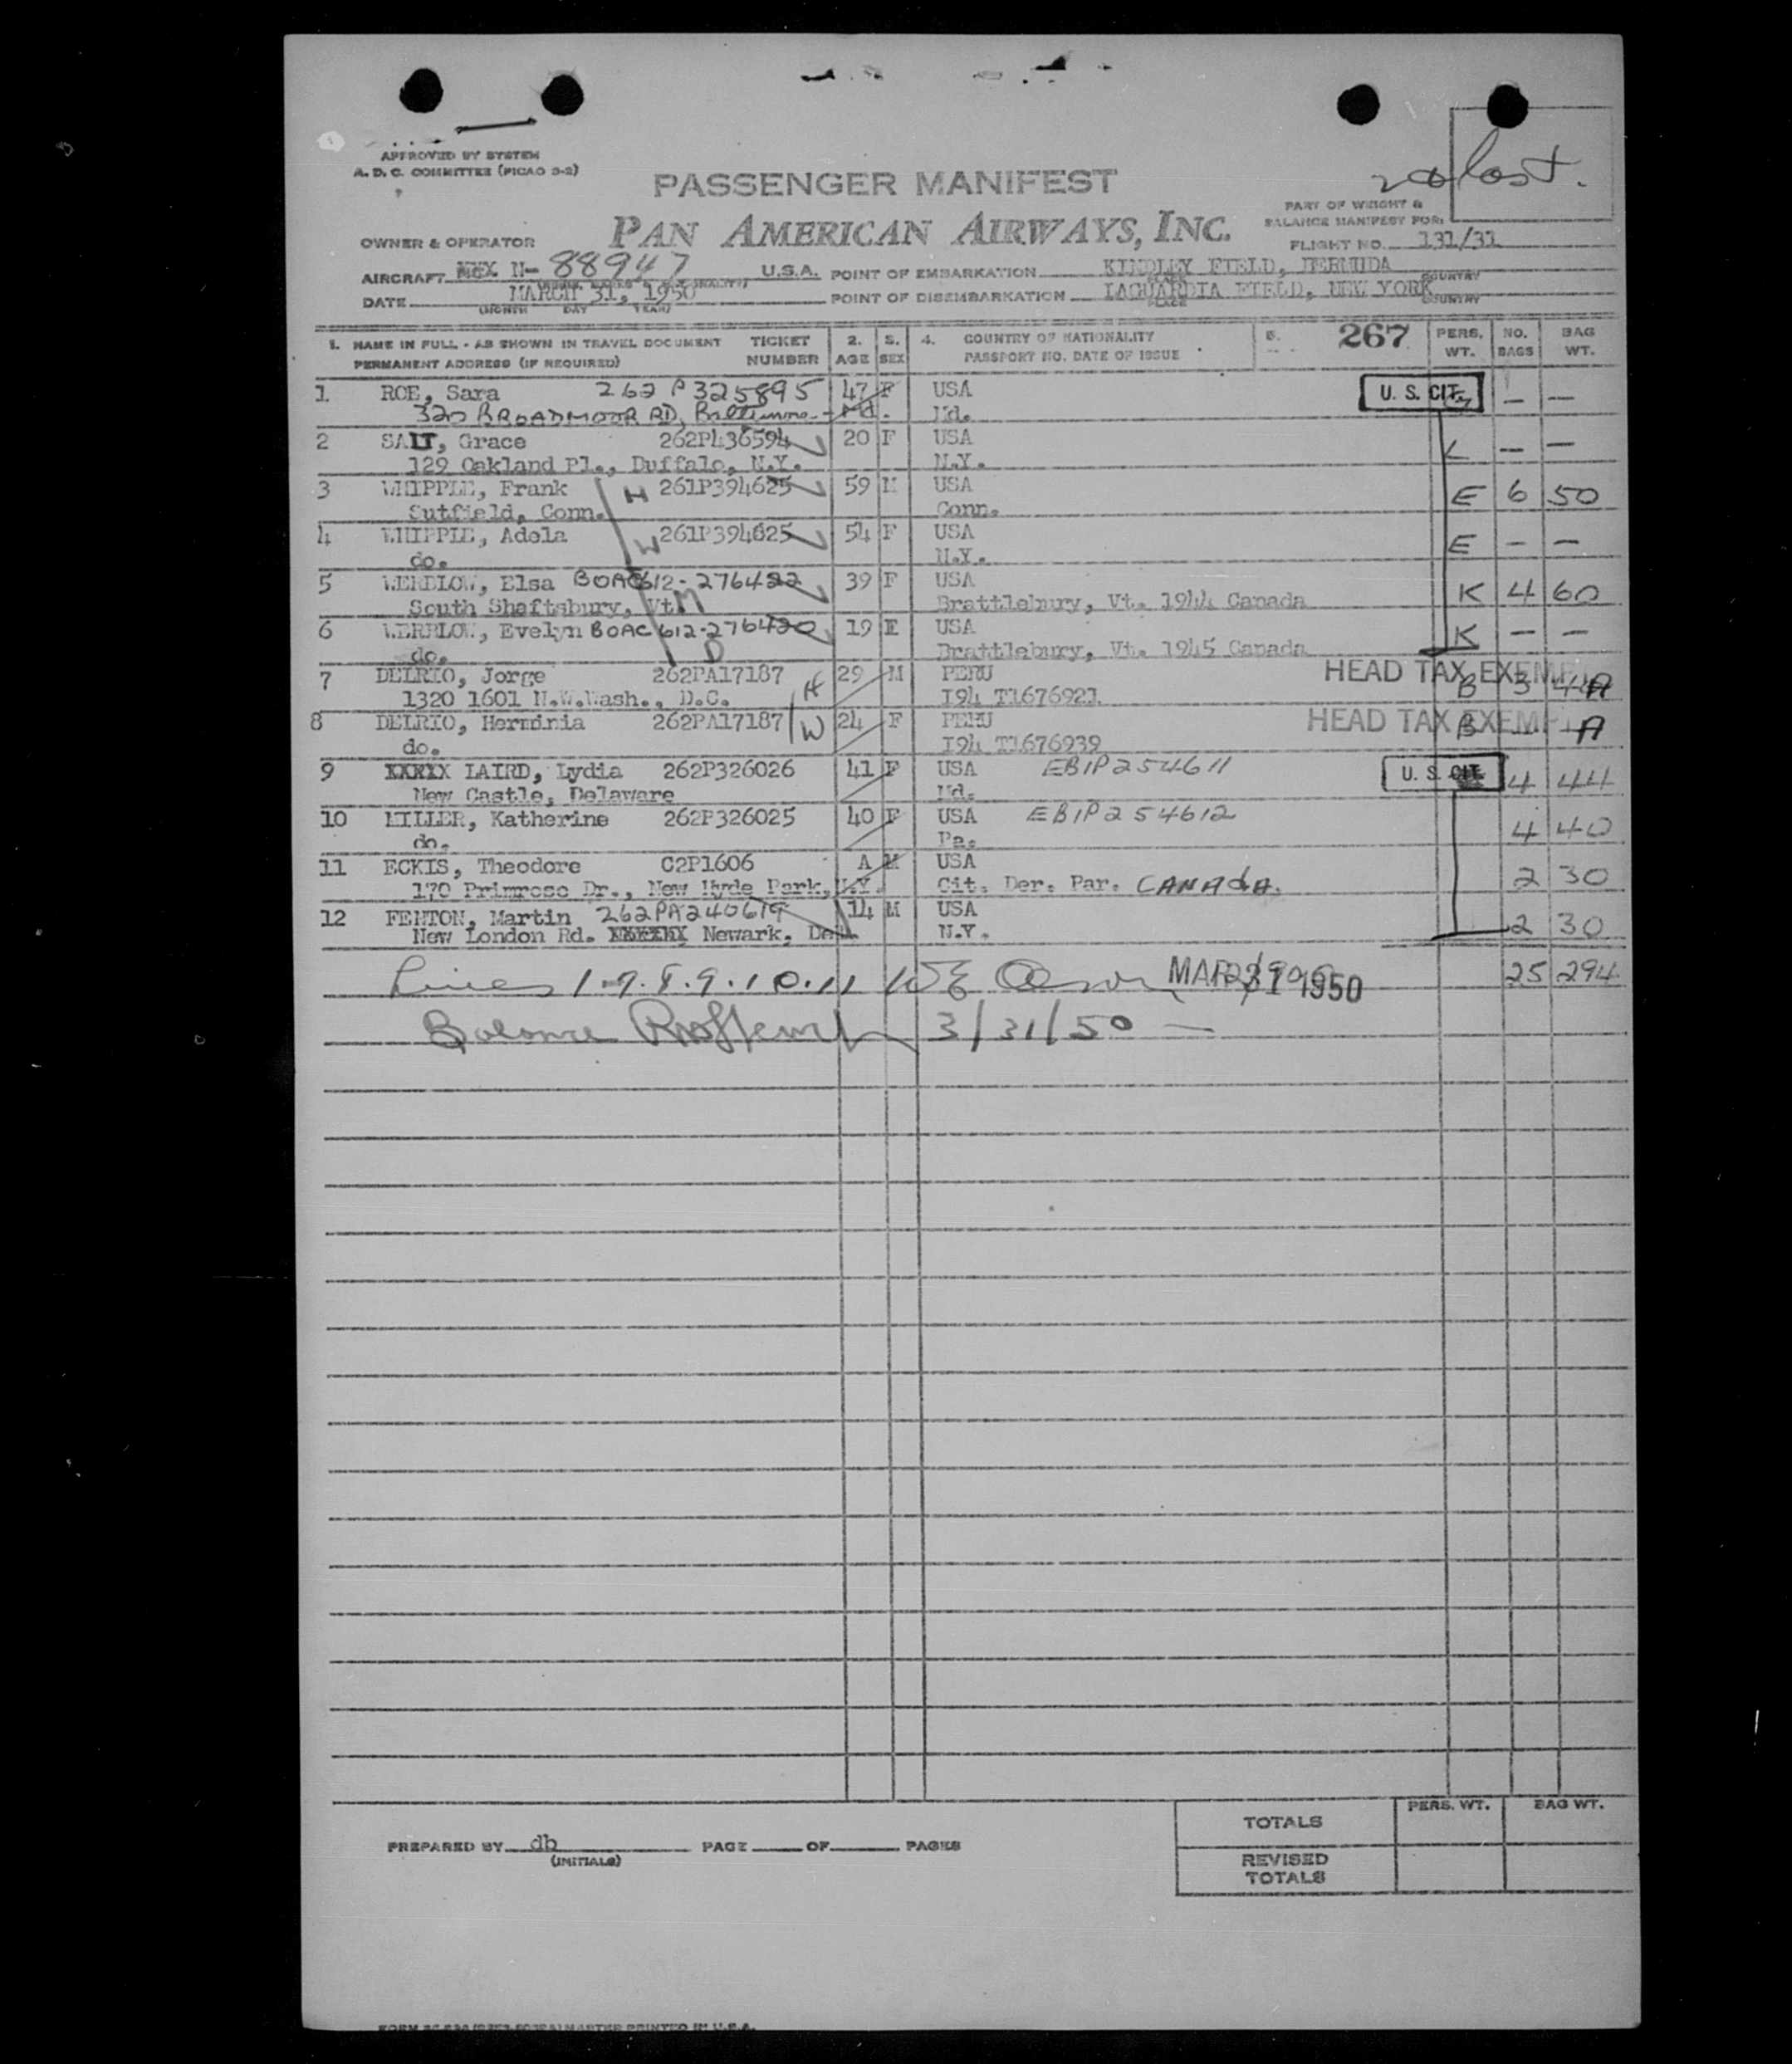 APPROVED BY SYSTEM
A. D. C. COMMITTEE (PICAO 3-2)
PASSENGER MANIFEST
PAN AMERICAN AIRWAYS, INC.
last.
PART OF WEIGHT &
BALANCE MANIFEST FOR:
FLIGHT NO. 131/31
OWNER & OPERATOR
AIRCRAFT N-88947 U.S.A. POINT OF EMBARKATION KINDLEY FIELD, BERMUDA COUNTRY
DATE MARCH 31, 1950 POINT OF DISEMBARKATION LAGUARDIA FIELD, NEW YORK COUNTRY
(MONTH DAY YEAR) PLACE
1. NAME IN FULL - AS SHOWN IN TRAVEL DOCUMENT TICKET 2. 3. 4. COUNTRY OF NATIONALITY 5. 267 PERS. NO. BAG
PERMANENT ADDRESS (IF REQUIRED) NUMBER AGE SEX PASSPORT NO. DATE OF ISSUE WT. BAGS WT.
1 ROE, Sara 262 P 325895 47 F USA U. S. CIT. — —
320 BROADMOOR RD, Baltimore - Md. Md.
2 SALT, Grace 262P436594 20 F USA L — —
129 Oakland Pl., Buffalo, N.Y. N.Y.
3 WHIPPLE, Frank H 261P394625 59 M USA E 6 50
Sutfield, Conn. Conn.
4 WHIPPLE, Adela W 261P394625 54 F USA E — —
do. N.Y.
5 WERDLOW, Elsa BOAC 612-276422 39 F USA K 4 60
South Shaftsbury, Vt. M Brattlebury, Vt. 1944 Canada
6 WERDLOW, Evelyn BOAC 612-276420 19 F USA K — —
do. D Brattlebury, Vt. 1945 Canada
7 DELRIO, Jorge 262PA17187 H 29 M PERU HEAD TAX EXEMPT B 3 40
1320 1601 N.W.Wash., D.C. I94 T1676921
8 DELRIO, Herminia 262PA17187 W 24 F PERU HEAD TAX EXEMPT B A
do. I94 T1676939
9 XXXXX LAIRD, Lydia 262P326026 41 F USA EBIP254611 U. S. CIT. 4 44
New Castle, Delaware Md.
10 MILLER, Katherine 262P326025 40 F USA EBIP254612 4 40
do. Pa.
11 ECKIS, Theodore C2P1606 A M USA 2 30
170 Primrose Dr., New Hyde Park, N.Y. Cit. Der. Par. CANADA.
12 FENTON, Martin 262PA240619 14 M USA 2 30
New London Rd. XXXXXX Newark, Del. N.Y.
Lines 1.7.8.9.10.11 MAR 31 1950 25 294
Balance 3/31/50 —
TOTALS PERS. WT. BAG WT.
PREPARED BY db PAGE OF PAGES
(INITIALS)
REVISED
TOTALS